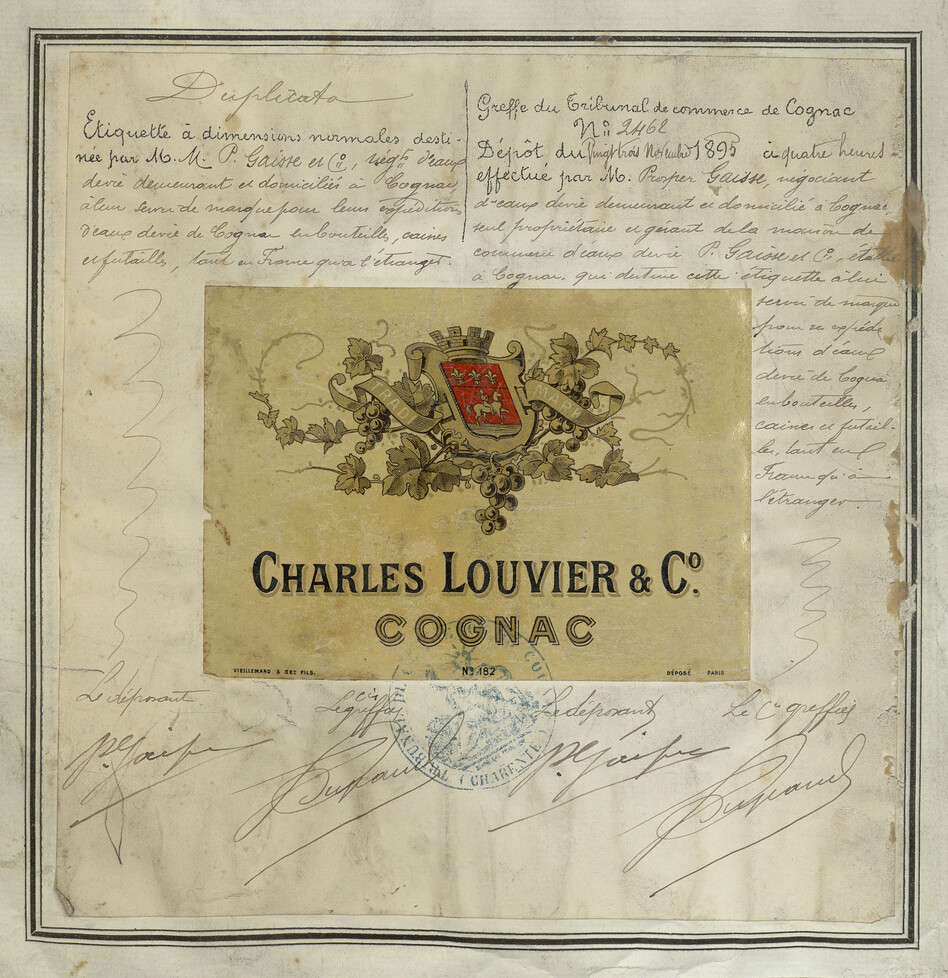 Duplicata
Etiquette à dimensions normales desti-
née par M.M. P. Gaisse et Cie, négts d'eaux
devie demeurant et domiciliés à Cognac,
à leur servir de marque pour leurs expéditions
d'eaux devie de Cognac en bouteilles, caisses
et futailles, tant en France qu'à l'étranger.
Greffe du Tribunal de commerce de Cognac
No 2462
Dépôt du vingt trois Novembre 1895 à quatre heures
effectué par M. Prosper Gaisse, négociant
d'eaux devie demeurant et domicilié à Cognac
seul propriétaire et gérant de la maison de
commerce d'eaux devie P. Gaisse et Cie, établie
à Cognac, qui destine cette étiquette à lui
servir de marque
pour ses expédi-
tions d'eaux
devie de Cognac
en bouteilles,
caisses et futail-
les, tant en
France qu'à
l'étranger
CHARLES LOUVIER & Co.
COGNAC
VIEILLEMARD & SES FILS.
No 182
DÉPOSÉ PARIS
TRIBUNAL
(CHARENTE)
Le déposant
Le Cis greffier
Le déposant
Le Cis greffier
P. Gaisse
P. Gaisse